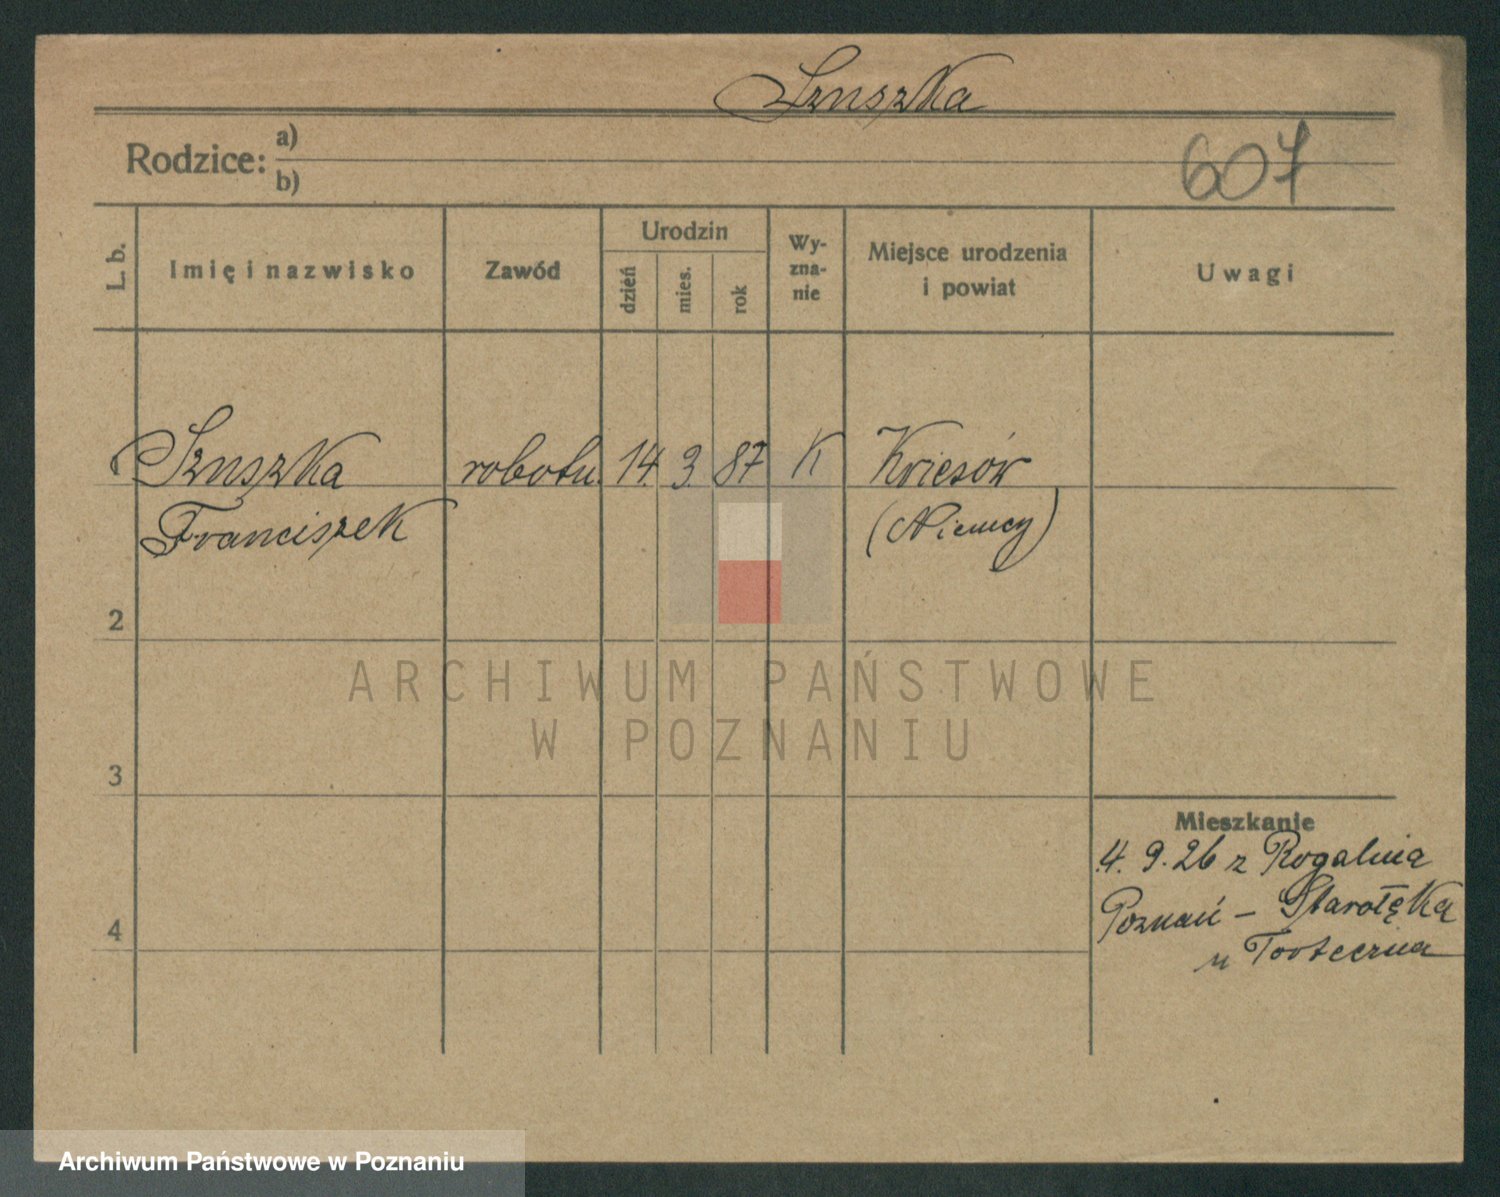 Szuszka
Rodzice: a)
b)
607
L. b.
Imię i nazwisko
Zawód
Urodzin
dzień
mies.
rok
Wy-
zna-
nie
Miejsce urodzenia
i powiat
Uwagi
Szuszka robotn. 14. 3. 87 K
Franciszek (Niemcy)
2
ARCHIWUM PAŃSTWOWE
W POZNANIU
3
Mieszkanie
4. 9. 26 z Rogalina
Poznań – Starołęka
4
Archiwum Państwowe w Poznaniu